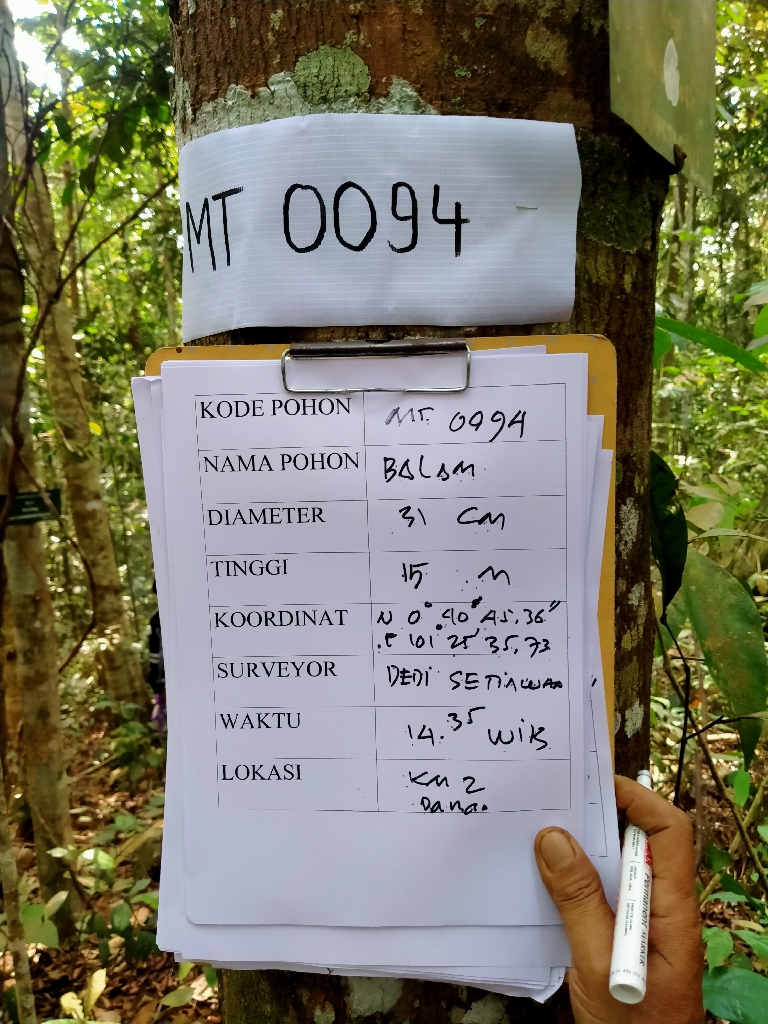 MT 0094
KODE POHON MT. 0094
NAMA POHON BALAM
DIAMETER 31 CM
TINGGI 15 M
KOORDINAT N 0° 40' 45,36"
E 101° 25' 35,73
SURVEYOR DEDI SETIAWAN
WAKTU 14.35 WIB
LOKASI KM 2
PERMANENT MARKER